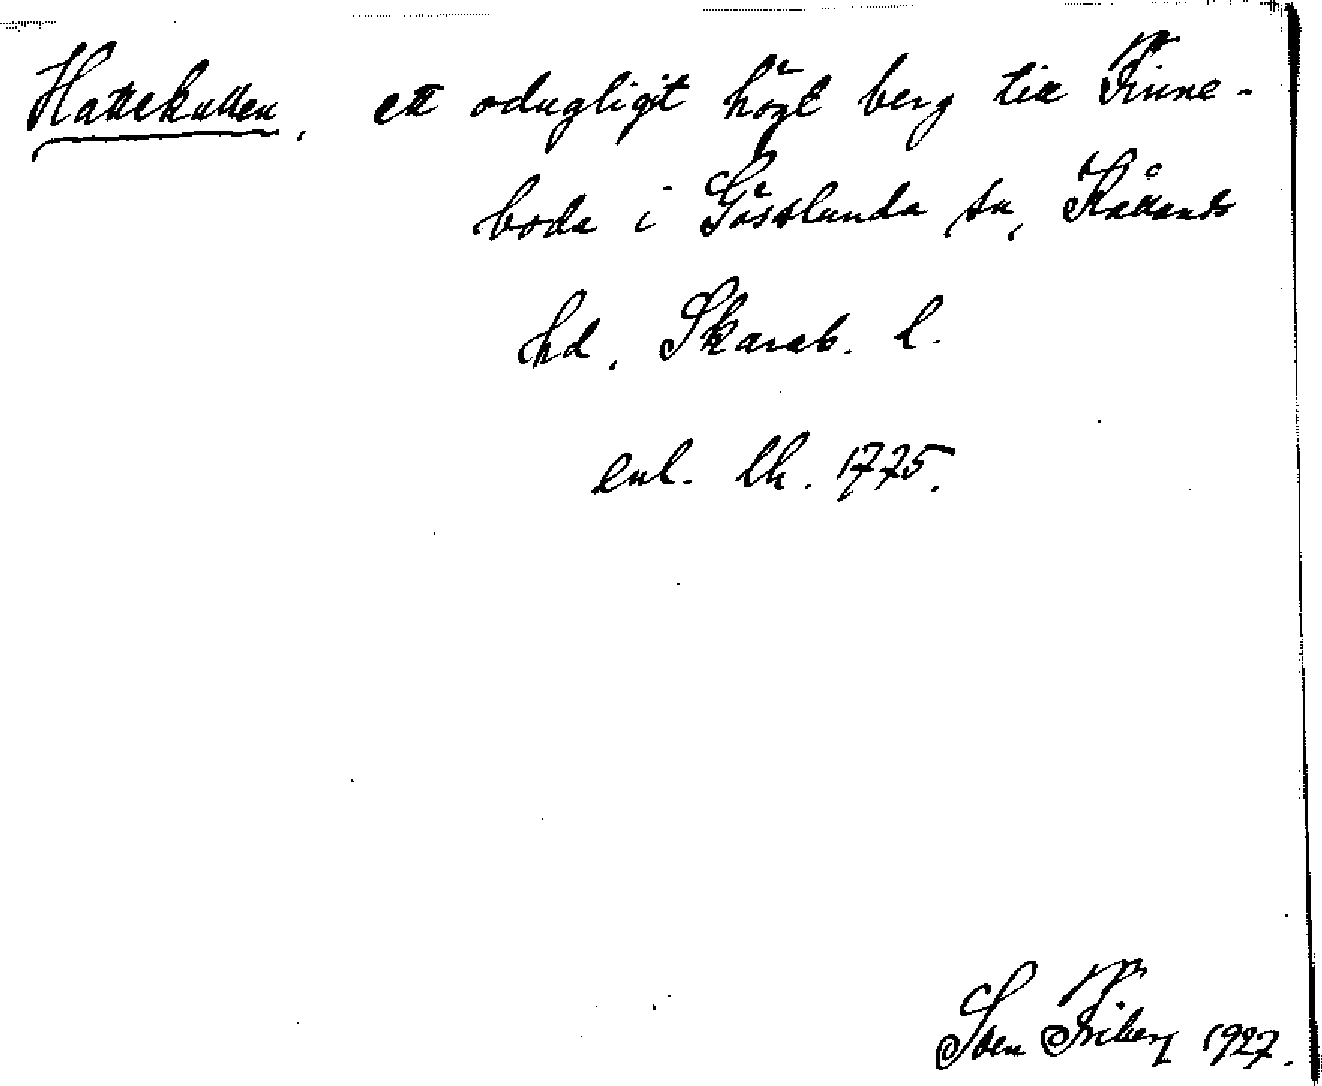 Hattekullen, ett odugligit högt berg till Finne-
boda i Gösslunda sn, Kållands
hd, Skarab. l.
enl. lh. 1775.
Sven Friberg 1927.